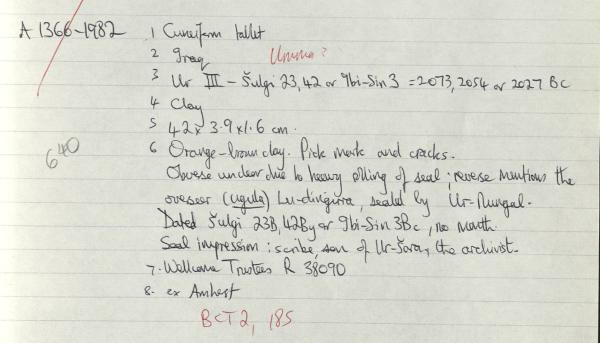 A 1366-1982
1 Cuneiform tablet
2 Iraq Umma?
3 Ur III - Šulgi 23, 42 or Ibi-Sin 3 = 2073, 2054 or 2027 BC
4 Clay
5 4.2 x 3.9 x 1.6 cm.
640
6 Orange-brown clay. Pick mark and cracks.
Obverse unclear due to heavy rolling of seal; reverse mentions the
overseer (ugula) Lu-dingirra, sealed by Ur-Nungal.
Dated Šulgi 23B, 42By or Ibi-Sin 3Bc, no month.
Seal impression: scribe, son of Ur-Šara, the archivist.
7. Wellcome Trustees R 38090
8. ex Amherst
BCT2, 185